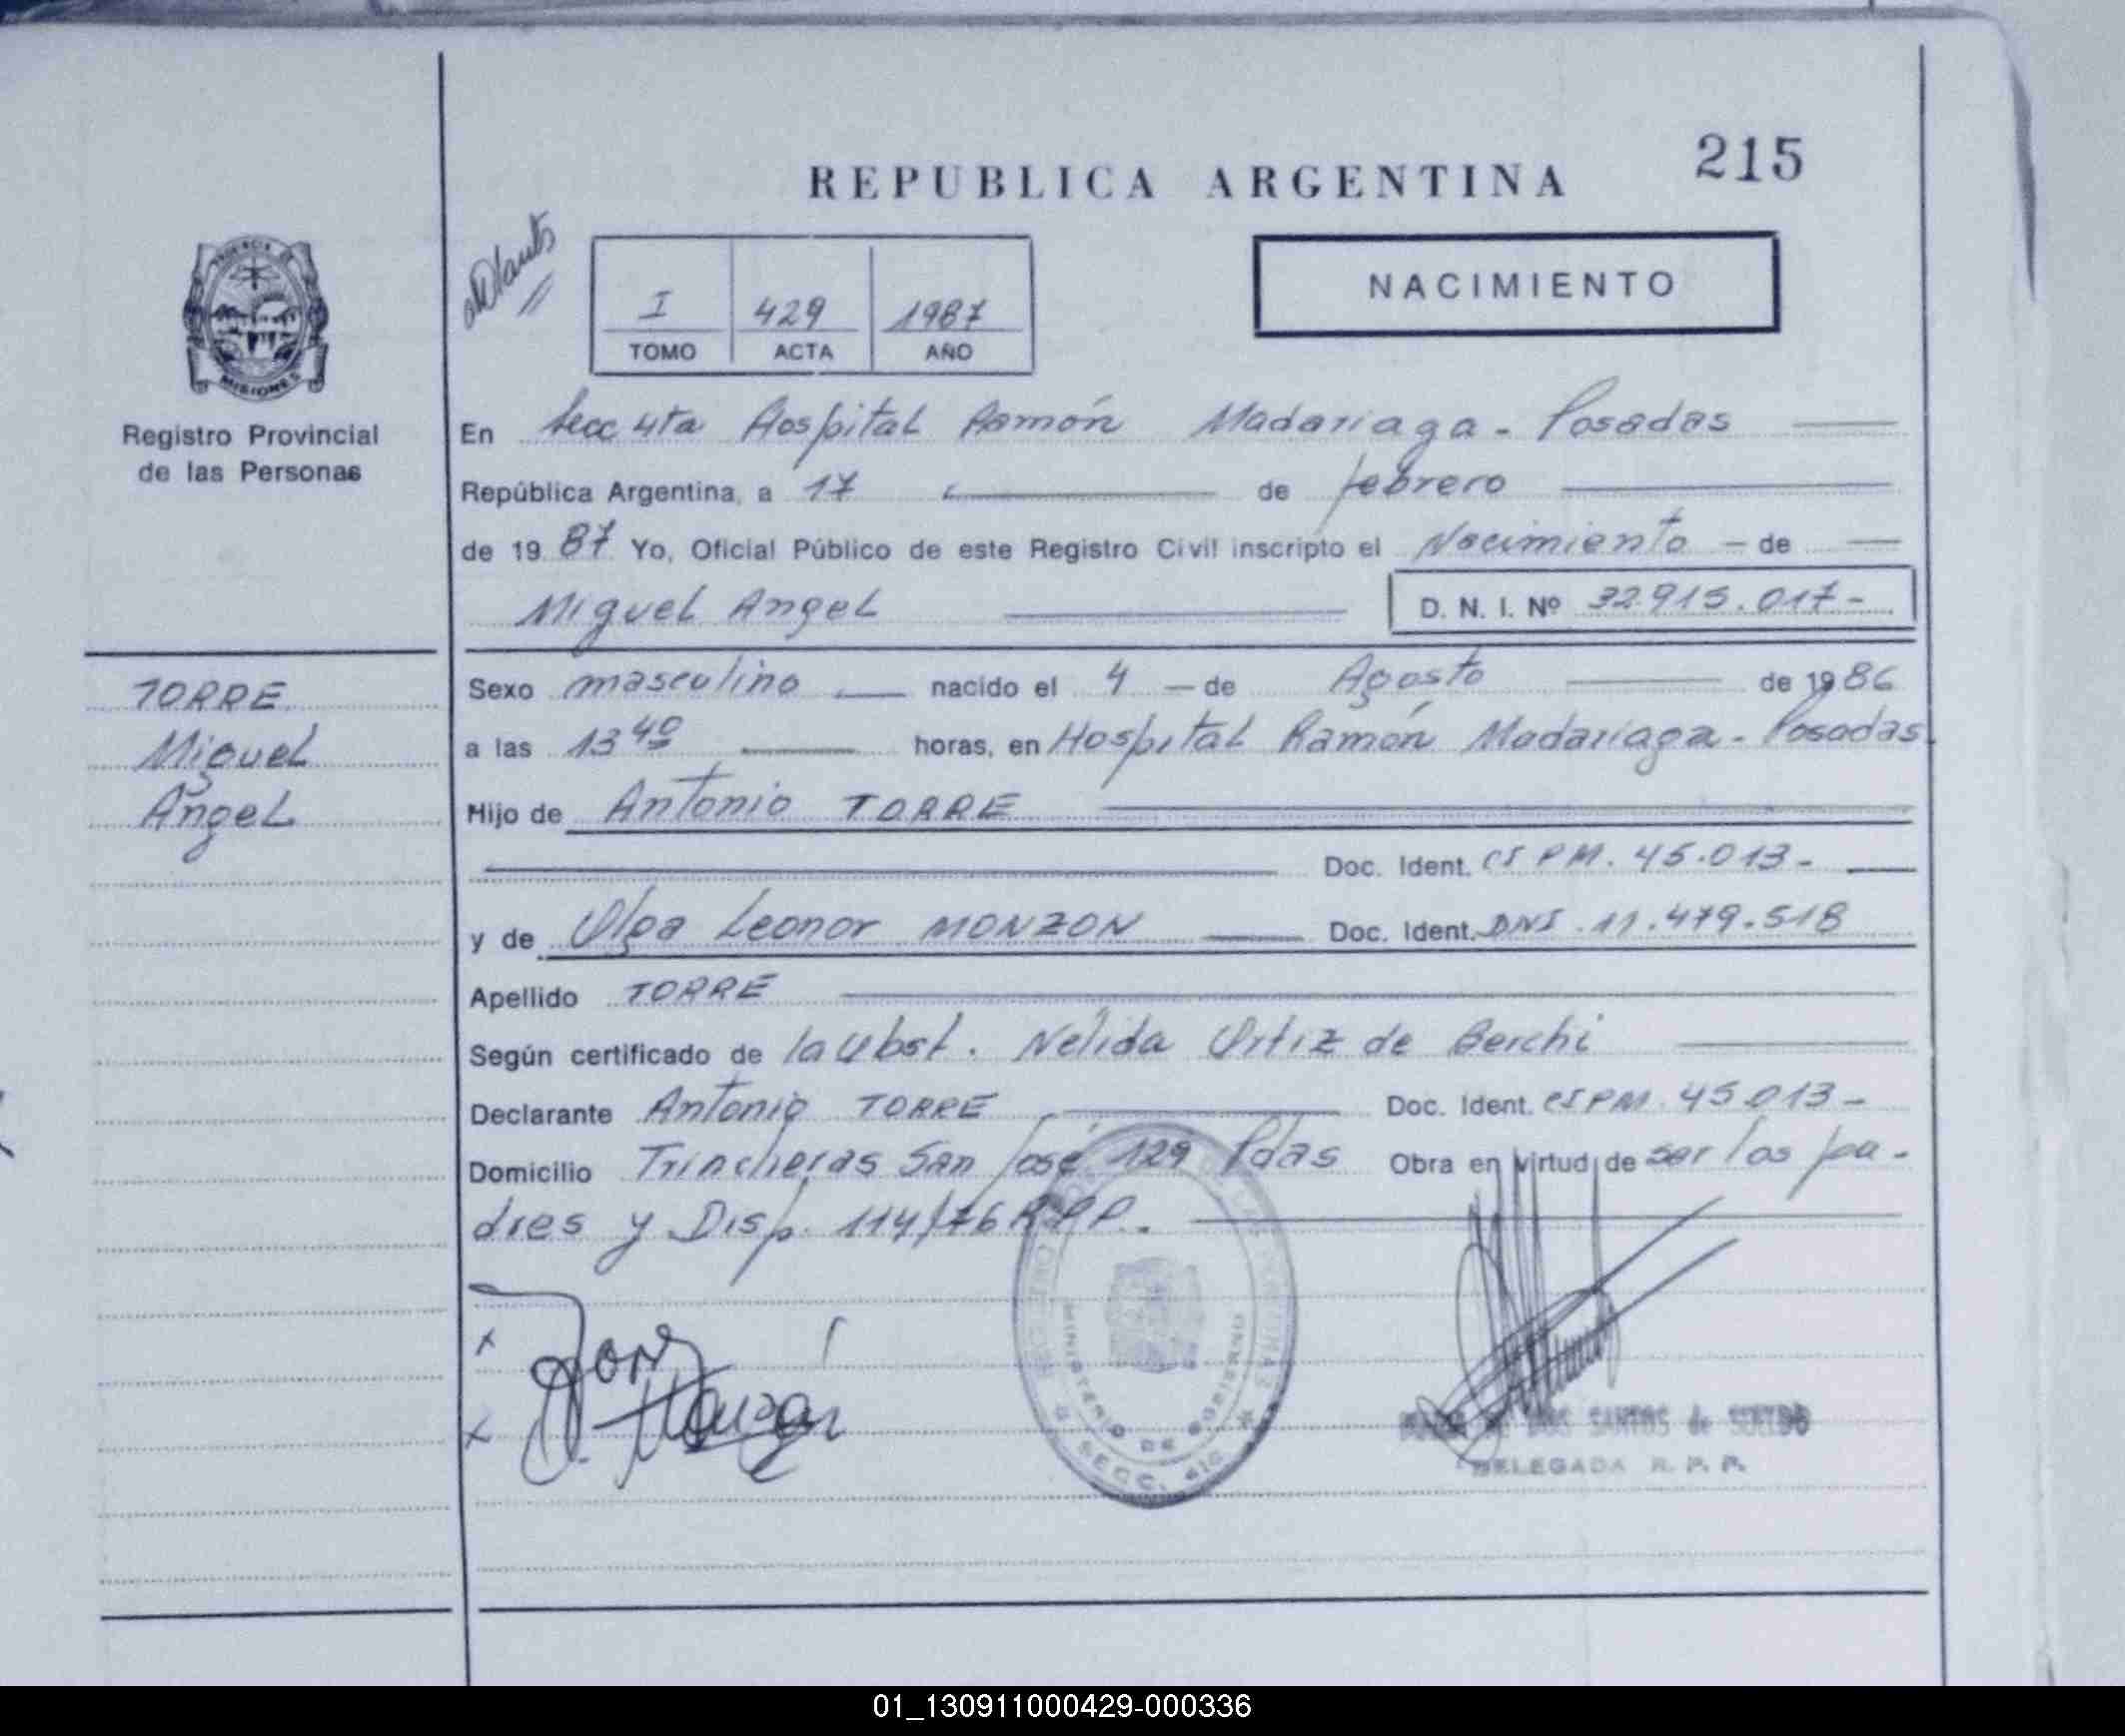 215
REPUBLICA ARGENTINA
NACIMIENTO
I 429 1987
TOMO ACTA AÑO
PROVINCIA DE
MISIONES
Registro Provincial
de las Personas
En Secc 4ta Hospital Ramón Madariaga - Posadas
República Argentina, a 17 de febrero
de 1987 Yo, Oficial Público de este Registro Civil inscripto el Nacimiento - de
Miguel Angel D. N. I. Nº 32.915.017-
TORRE
Miguel
Angel
Sexo masculino nacido el 4 - de Agosto de 1986
a las 13 40 horas, en Hospital Ramón Madariaga - Posadas
Hijo de Antonio TORRE
Doc. Ident. CI PM. 45.013-
y de Olga Leonor MONZON Doc. Ident. DNI 11.479.518
Apellido TORRE
Según certificado de la Obst. Nélida Ortiz de Berchi
Declarante Antonio TORRE Doc. Ident. CI PM 45.013-
Domicilio Trincheras San José 129 Pdas Obra en virtud de ser los pa-
dres y Disp. 114/76 R.P.P.
MINISTERIO DE GOBIERNO
SECC. 4ta
DOS SANTOS de
DELEGADA R. P. P.
01_130911000429-000336